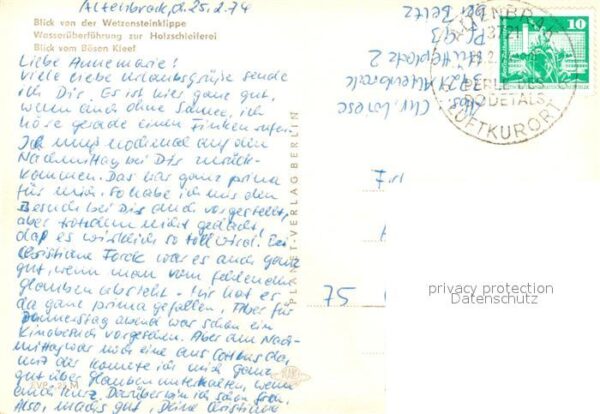 Altenbrak, d. 25.2.74
Blick von der Wetzensteinklippe
Wasserüberführung zur Holzschleiferei
Blick vom Bösen Kleef
Liebe Annemarie!
Viele liebe Urlaubsgrüße sende
ich Dir. Es ist hier ganz gut,
wenn auch ohne Sonne, ich
höre gerade einen Finken rufen.
Ich muß nochmal auf den
Nachmittag bei Dir zurück-
kommen. Das war ganz prima
für mich. So habe ich mir den
Besuch bei Dir auch vorgestellt,
aber trotzdem nicht gedacht,
daß es wirklich so toll wird. Bei
Christiane war es auch ganz
gut, wenn man vom fehlenden
Glauben absieht. Mir hat es
da ganz prima gefallen. Aber für
Donnerstag abend war schon ein
Kinobesuch vorgesehen. Aber am Nach-
mittag war noch eine aus Cottbus da,
mit der konnte ich mich ganz
gut über Glauben unterhalten, wenn
auch kurz. Darüber bin ich schon froh.
Also, machs gut, Deine Christina
EVP -,25 M
PLANET-VERLAG BERLIN
3721 Altenbrak
Hüttenplatz 2
PF 93
ALTENBRAK
3721
PERLE DES
BODETALS
LUFTKURORT
10
75
privacy protection
Datenschutz